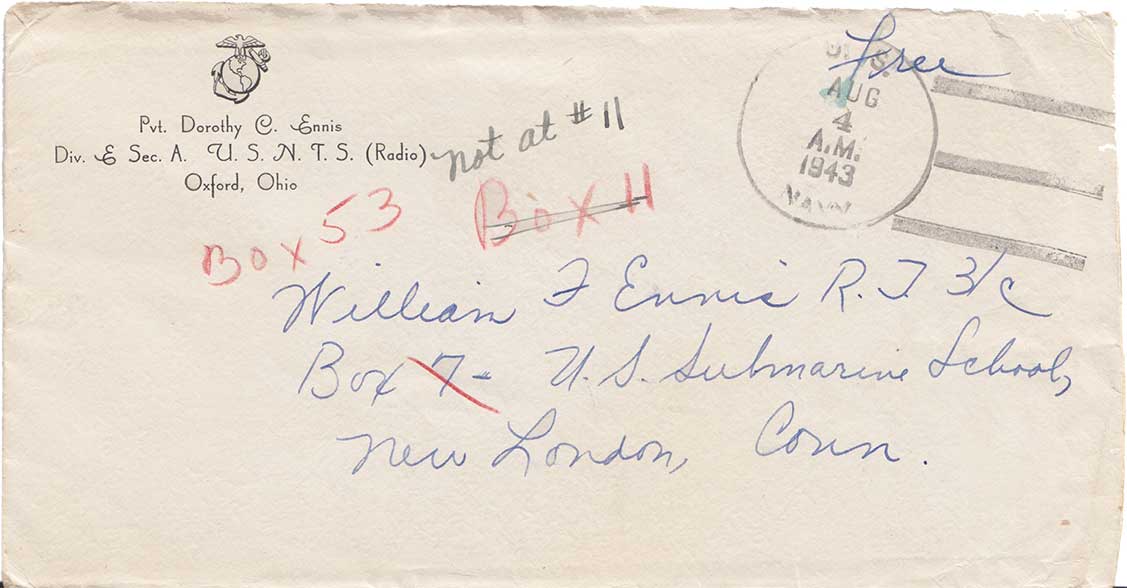 Free
U. S.
AUG
4
A.M.
1943
NAVY
Pvt. Dorothy C. Ennis
Div. E Sec. A. U. S. N. T. S. (Radio)
Oxford, Ohio
not at #11
Box 53
Box 11
William F Ennis R. T. 3/c
Box 7- U. S. Submarine School,
New London, Conn.